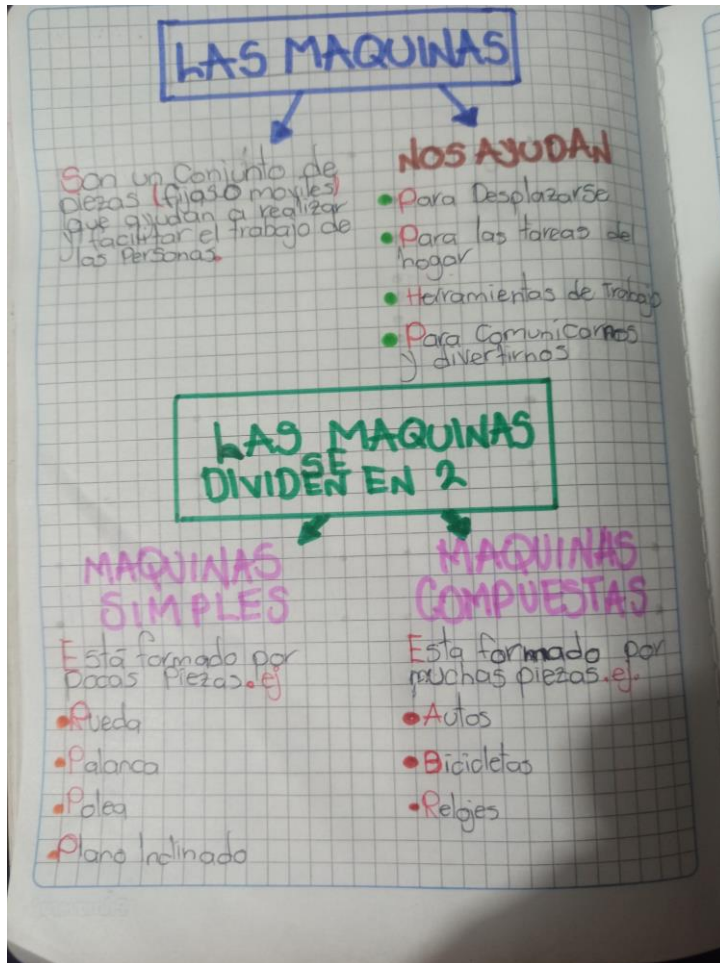 LAS MAQUINAS
Son un Conjunto de
piezas (fijas o moviles)
que ayudan a realizar
y facilitar el trabajo de
las Personas.
NOS AYUDAN
Para Desplazarse
Para las tareas del
hogar
Herramientas de Trabajo
Para Comunicarnos
y divertirnos
LAS MAQUINAS
SE
DIVIDEN EN 2
MAQUINAS
SIMPLES
Está formado por
Pocas Piezas. ej
Rueda
Palanca
Polea
Plano Inclinado
MAQUINAS
COMPUESTAS
Esta formado por
muchas piezas. ej.
Autos
Bicicletas
Relojes